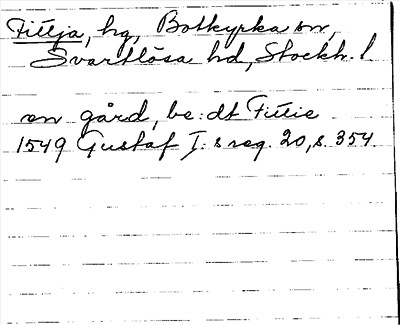 Fittja, hg, Botkyrka sn,
Svartlösa hd, Stockh. l
en gård, be: dt Fittie
1549 Gustaf I: s reg. 20, s. 354.